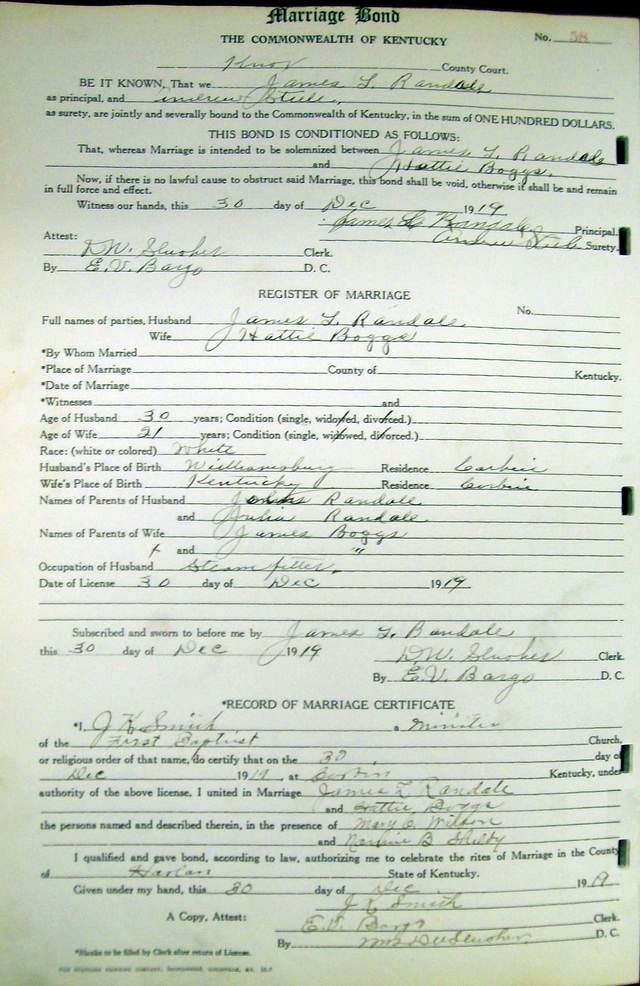 Marriage Bond
THE COMMONWEALTH OF KENTUCKY
No. 58
Knox County Court.
BE IT KNOWN, That we James L Randale
as principal, and Andrew Steele,
as surety, are jointly and severally bound to the Commonwealth of Kentucky, in the sum of ONE HUNDRED DOLLARS.
THIS BOND IS CONDITIONED AS FOLLOWS:
That, whereas Marriage is intended to be solemnized between James L. Randale
and Hattie Boggs.
Now, if there is no lawful cause to obstruct said Marriage, this bond shall be void, otherwise it shall be and remain
in full force and effect.
Witness our hands, this 30 day of Dec 1919
James L Randale Principal.
Andrew Steele Surety.
Attest:
D.W. Slusher Clerk.
By E.V. Bargo D. C.
REGISTER OF MARRIAGE
No.
Full names of parties, Husband James L. Randale.
Wife Hattie Boggs
*By Whom Married
*Place of Marriage County of Kentucky.
*Date of Marriage
*Witnesses and
Age of Husband 30 years; Condition (single, widowed, divorced.)
Age of Wife 21 years; Condition (single, widowed, divorced.)
Race: (white or colored) White
Husband's Place of Birth Williamsburg Residence Corbin
Wife's Place of Birth Kentucky Residence Corbin
Names of Parents of Husband Randale
and Julia Randale
Names of Parents of Wife James Boggs
and "
Occupation of Husband Steam fitter.
Date of License 30 day of Dec 1919
Subscribed and sworn to before me by James L. Randale
this 30 day of Dec 1919
D.W. Slusher Clerk.
By E.V. Bargo D. C.
*RECORD OF MARRIAGE CERTIFICATE
*I, J K Smith a Minister
of the First Baptist Church,
or religious order of that name, do certify that on the 30 day of
Dec 1919, at Corbin Kentucky, under
authority of the above license, I united in Marriage James L Randale
and Hattie Boggs
the persons named and described therein, in the presence of Mary C Wilson
and B Shelby
I qualified and gave bond, according to law, authorizing me to celebrate the rites of Marriage in the County
of Harlan State of Kentucky.
Given under my hand, this 30 day of Dec 1919
J K Smith
A Copy, Attest: E.V. Bargo Clerk.
By D. C.
*Blanks to be filed by Clerk after return of License.